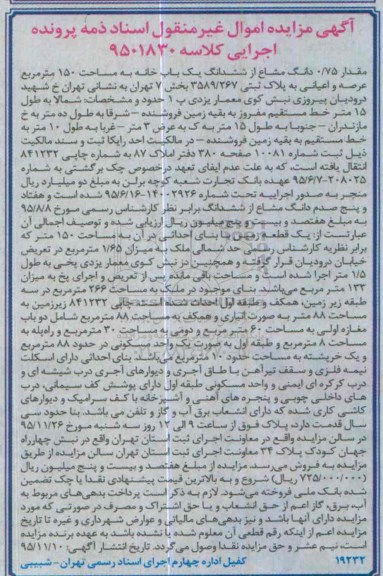 آگهی مزایده اموال غیرمنقول اسناد ذمه پرونده
اجرایی کلاسه ۹۵۰۱۸۳۰
مقدار ۰/۷۵ دانگ مشاع از ششدانگ یک باب خانه به مساحت ۱۵۰ مترمربع
عرصه و اعیانی به پلاک ثبتی ۳۵۸۹/۲۶۷ بخش ۷ تهران به نشانی تهران خ شهید
درودیان پیروزی نبش کوی معمار یزدی پ ۱ حدود و مشخصات: شمالا به طول
۱۵ متر خط مستقیم مفروز به بقیه زمین فروشنده – شرقا به طول ده متر به خ
مازندران – جنوبا به طول ۱۵ متر به ک به عرض ۳ متر – غربا به طول ۱۰ متر به
خط مستقیم به بقیه زمین فروشنده – در مالکیت احد رایکا ثبت و سند مالکیت
ذیل ثبت شماره ۱۰۰۸۱ صفحه ۳۸۰ دفتر املاک ۸۷ به شماره چاپی ۸۴۱۲۳۲
انتقال یافته است، که به علت عدم ایفای تعهد درخصوص چک برگشتی به شماره
۹۵/۶/۷-۲۰۸۰۲۵ عهده بانک تجارت شعبه کوچه برلن به مبلغ دو میلیارد ریال
منجر به صدور اجراییه تحت شماره ۱۴۰۰۲۹۲۶-۹۵/۶/۱۶ شده است و هفتاد
و پنج صدم دانگ مشاع از ششدانگ برابر نظر کارشناس رسمی مورخ ۹۵/۸/۸
به مبلغ هفتصد و بیست و پنج میلیون ریال ارزیابی شده و توصیف اجمالی آن
عبارتست از: یک قطعه زمین با بنای احداثی در آن به مساحت ۱۵۰ متر که
برابر نظریه کارشناس رسمی حد شمالی ملک به میزان ۱/۶۵ مترمربع در تعریض
خیابان درودیان قرار گرفته و همچنین در نبش کوی معمار یزدی پخی به طول
۱/۵ متر اجرا شده است و مساحت باقی مانده پس از تعریض و اجرای پخ به میزان
۱۳۳ متر مربع می‌باشد. بنای موجود در ملک به مساحت ۲۶۶ مترمربع در سه
طبقه زیر زمین، همکف و طبقه اول احداث شده است. چاپی ۸۴۱۲۳۲ زیرزمین به
مساحت ۸۸ متر به صورت انباری و همکف به مساحت ۸۸ مترمربع شامل دو باب
مغازه اولی به مساحت ۶۰ متر مربع و دومی به مساحت ۳۰ مترمربع و راه‌پله به
مساحت ۸ مترمربع و طبقه اول به صورت یک واحد مسکونی در حدود ۸۸ مترمربع
و یک خرپشته به مساحت حدود ۱۰ مترمربع می‌باشد. بنای احداثی دارای اسکلت
نیمه فلزی و سقف تیرآهن با طاق آجری و دیوارهای آجری درب شیشه ای و
درب کرکره ای ایمنی و واحد مسکونی طبقه اول دارای پوشش کف سیمانی، درب
های داخلی چوبی و پنجره های آهنی و آشپزخانه با کف سرامیک و دیوارهای
کاشی کاری شده که دارای انشعاب برق آب و گاز و تلفن می باشد. بنا حدود سی
سال قدمت دارد، پلاک فوق از ساعت ۹ الی ۱۲ روز سه شنبه مورخ ۹۵/۱۱/۲۶
در سالن مزایده واقع در معاونت اجرای ثبت استان تهران واقع در نبش چهارراه
جهان کودک پلاک ۳۴ معاونت اجرای ثبت استان تهران سالن مزایده از طریق
مزایده به فروش می‌رسد. مزایده از مبلغ هفتصد و بیست و پنج میلیون ریال
(۷۲۵/۰۰۰/۰۰۰ ریال) شروع و به بالاترین قیمت پیشنهادی نقدا یا چک تضمین
شده بانک ملی فروخته می‌شود. لازم به ذکر است پرداخت بدهی‌های مربوط به
آب، برق، گاز اعم از حق انشعاب و یا حق اشتراک و مصرف در صورتی که مورد
مزایده دارای آنها باشد و نیز بدهی‌های مالیاتی و عوارض شهرداری و غیره تا تاریخ
مزایده اعم از اینکه رقم قطعی آن معلوم شده یا نشده باشد به عهده برنده مزایده
است، نیم عشر و حق مزایده نقدا وصول می‌گردد. تاریخ انتشار آگهی: ۹۵/۱۱/۱۰
۱۹۲۳۲ کفیل اداره چهارم اجرای اسناد رسمی تهران- شبیبی